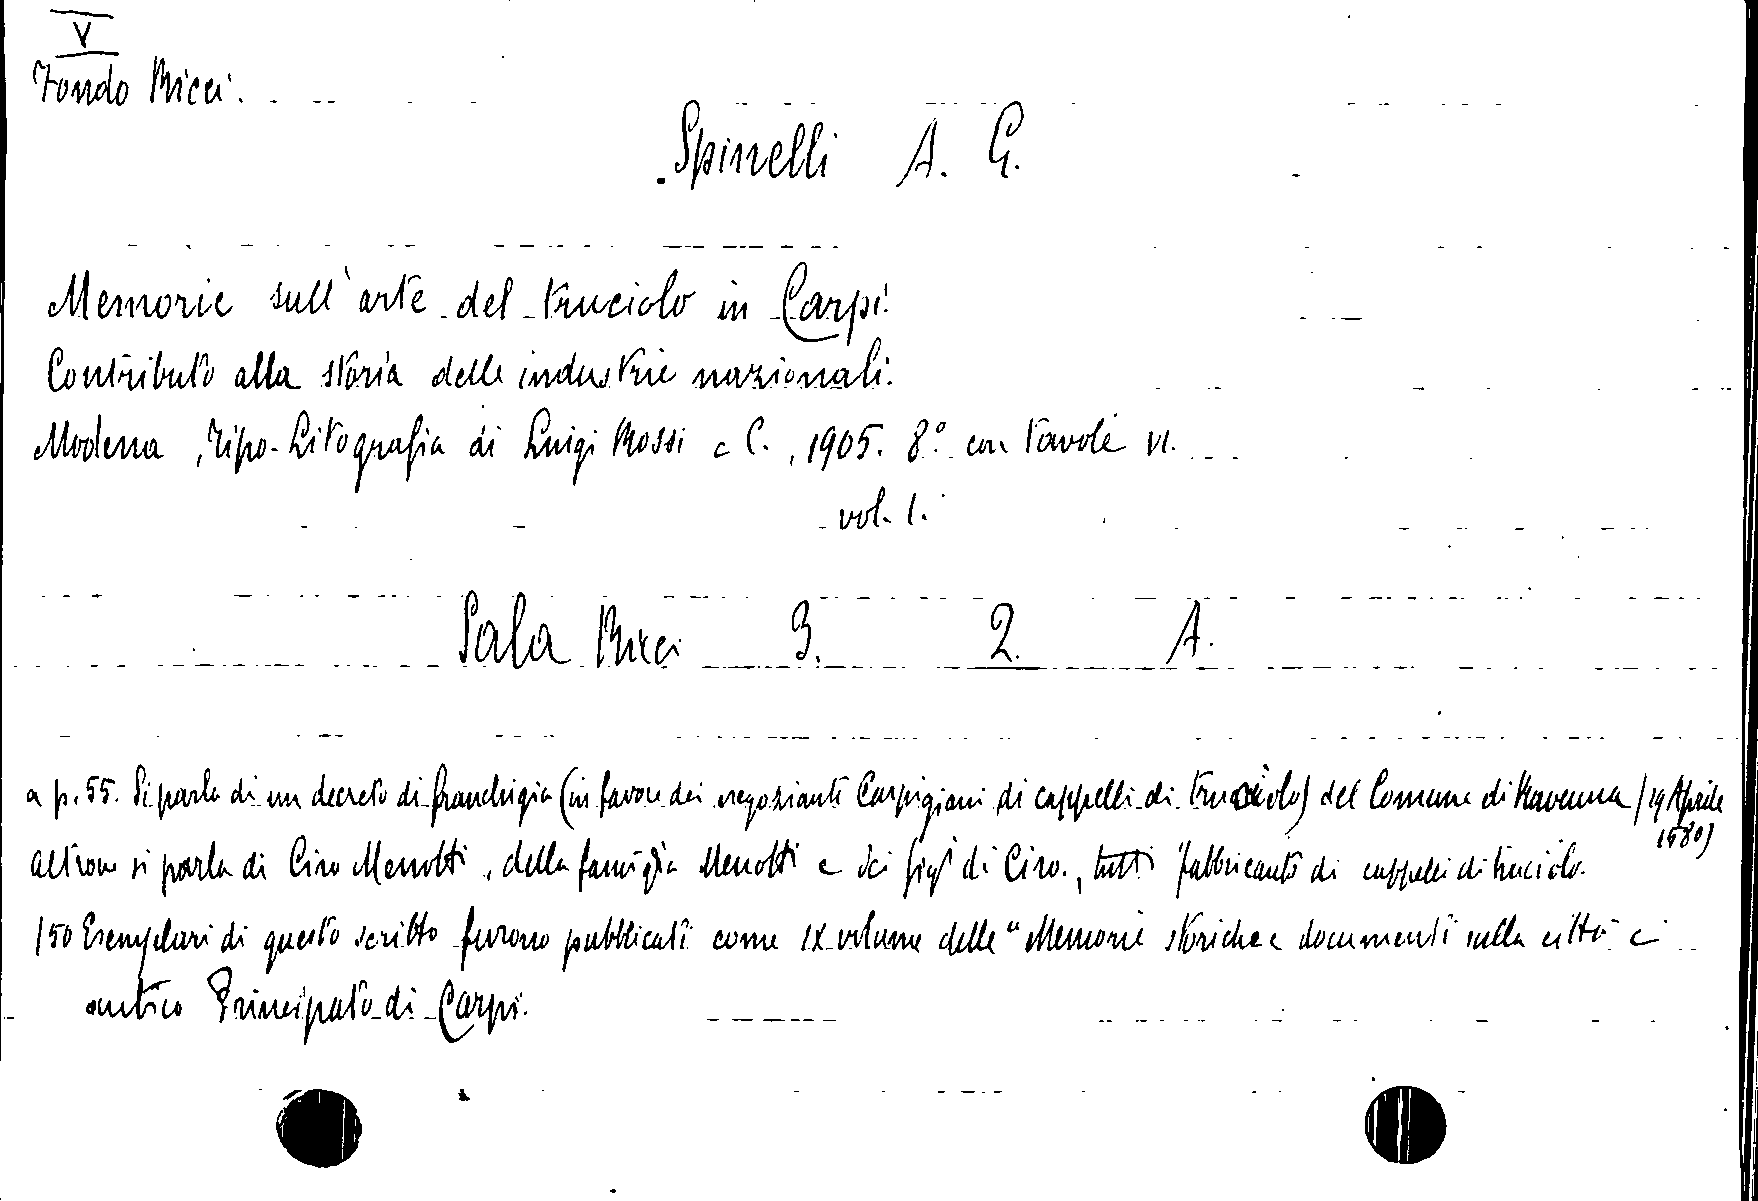 V
Fondo Ricci.
Spinelli A. G.
Memorie sull'arte del truciolo in Carpi.
Contributo alla storia delle industrie nazionali.
Modena, Tipo-Litografia di Luigi Rossi e C., 1905. 8° con tavole VI.
vol. 1.
Sala Ricci 3. 2. A.
a p. 55. Si parla di un decreto di franchigia (in favore dei negozianti Carpigiani di cappelli di truciolo) del Comune di Ravenna (19 Aprile
1580)
altrove si parla di Ciro Menotti, della famiglia Menotti e dei figli di Ciro, tutti fabbricanti di cappelli di truciolo.
150 Esemplari di questo scritto furono pubblicati come IX volume delle "Memorie storiche e documenti sulla città e
antico Principato di Carpi.